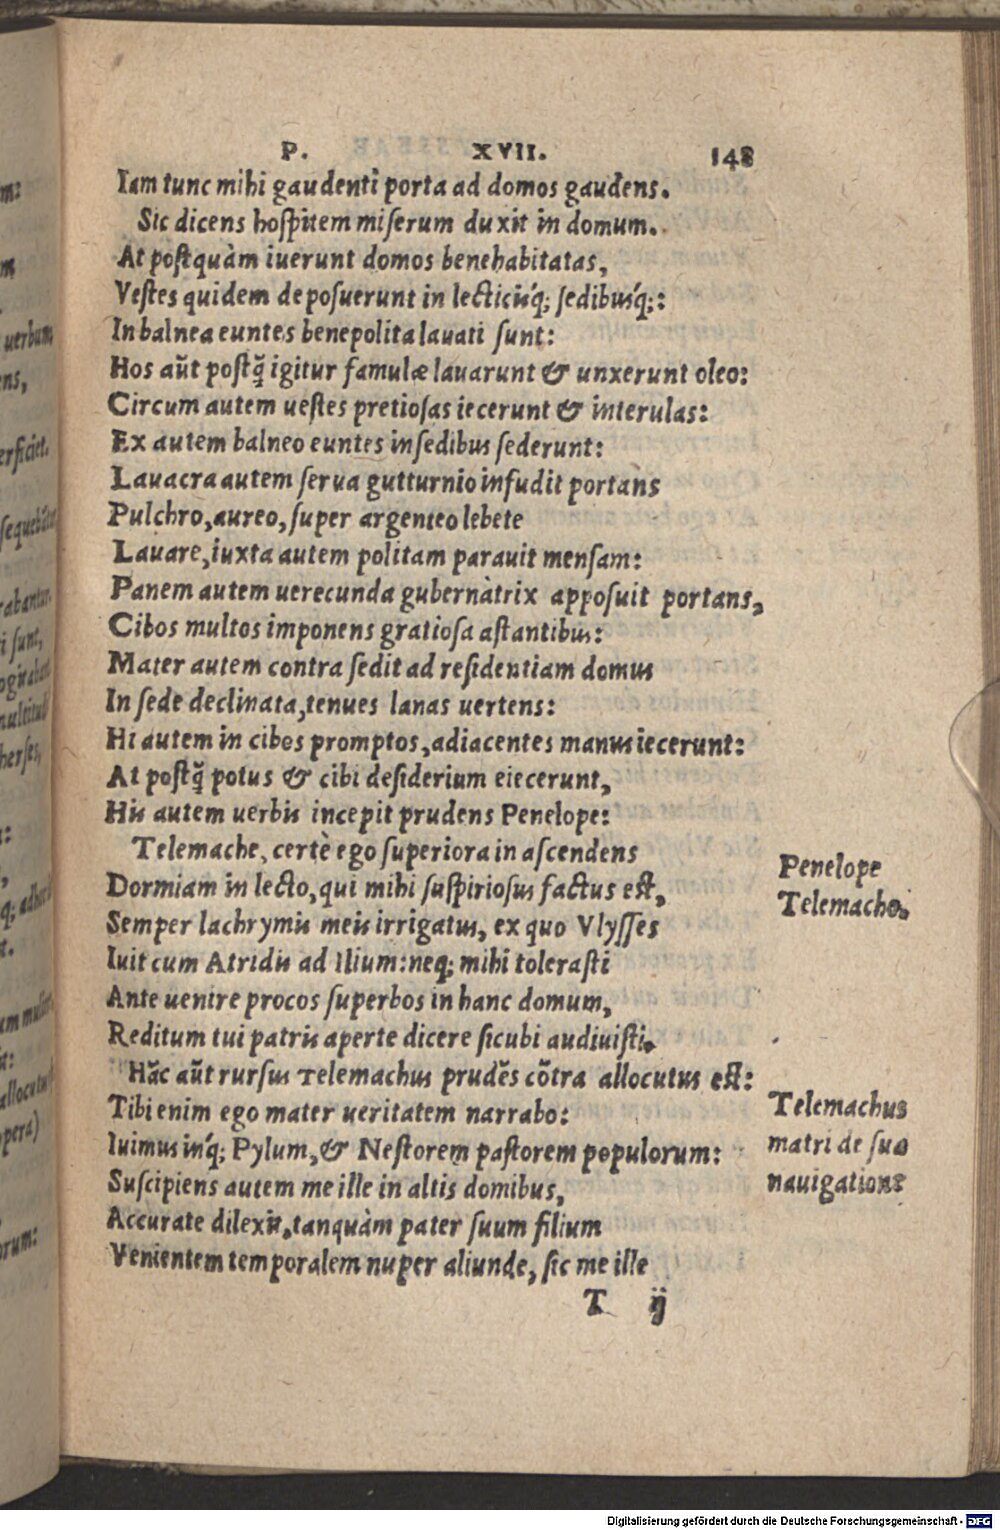 P. XVII. 148
Iam tunc mihi gaudenti porta ad domos gaudens.
Sic dicens hoſpitem miſerum duxit in domum.
At poſtquàm iuerunt domos benehabitatas,
Veſtes quidem depoſuerunt in lecticiśq; ſedibuśq;:
In balnea euntes benepolita lauati ſunt:
Hos aūt poſtq̄ igitur famulæ lauarunt & unxerunt oleo:
Circum autem ueſtes pretioſas iecerunt & interulas:
Ex autem balneo euntes in ſedibus ſederunt:
Lauacra autem ſerua gutturnio infudit portans
Pulchro, aureo, ſuper argenteo lebete
Lauare, iuxta autem politam parauit menſam:
Panem autem uerecunda gubernàtrix appoſuit portans,
Cibos multos imponens gratioſa aſtantibus:
Mater autem contra ſedit ad reſidentiam domus
In ſede declinata, tenues lanas uertens:
Hi autem in cibos promptos, adiacentes manus iecerunt:
At poſtq̄ potus & cibi deſiderium eiecerunt,
His autem uerbis incepit prudens Penelope:
Telemache, certè ego ſuperiora in aſcendens
Dormiam in lecto, qui mihi ſuſpirioſus factus eſt,
Semper lachrymis meis irrigatus, ex quo Vlyſſes
Iuit cum Atridis ad Ilium: neq; mihi toleraſti
Ante uenire procos ſuperbos in hanc domum,
Reditum tui patris aperte dicere ſicubi audiuiſti.
Hāc aūt rurſus Telemachus prudēs cōtra allocutus eſt:
Tibi enim ego mater ueritatem narrabo:
Iuimus inq́; Pylum, & Neſtorem paſtorem populorum:
Suſcipiens autem me ille in altis domibus,
Accurate dilexit, tanquàm pater ſuum filium
Venientem temporalem nuper aliunde, ſic me ille
T ij
Penelope
Telemacho.
Telemachus
matri de ſua
nauigatione
Digitalisierung gefördert durch die Deutsche Forschungsgemeinschaft - DFG